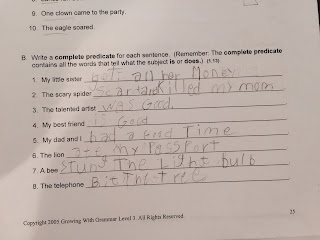 9. One clown came to the party.
10. The eagle soared.
B. Write a complete predicate for each sentence. (Remember: The complete predicate
contains all the words that tell what the subject is or does.) (1.13)
1. My little sister gets all her Money
2. The scary spider Killed my mom
3. The talented artist was Good
4. My best friend is Good
5. My dad and I had a Good Time
6. The lion ate my Passport
7. A bee Stung The Light bulb
8. The telephone Bit The Tree
Copyright 2005 Growing With Grammar Level 3. All Rights Reserved.
25